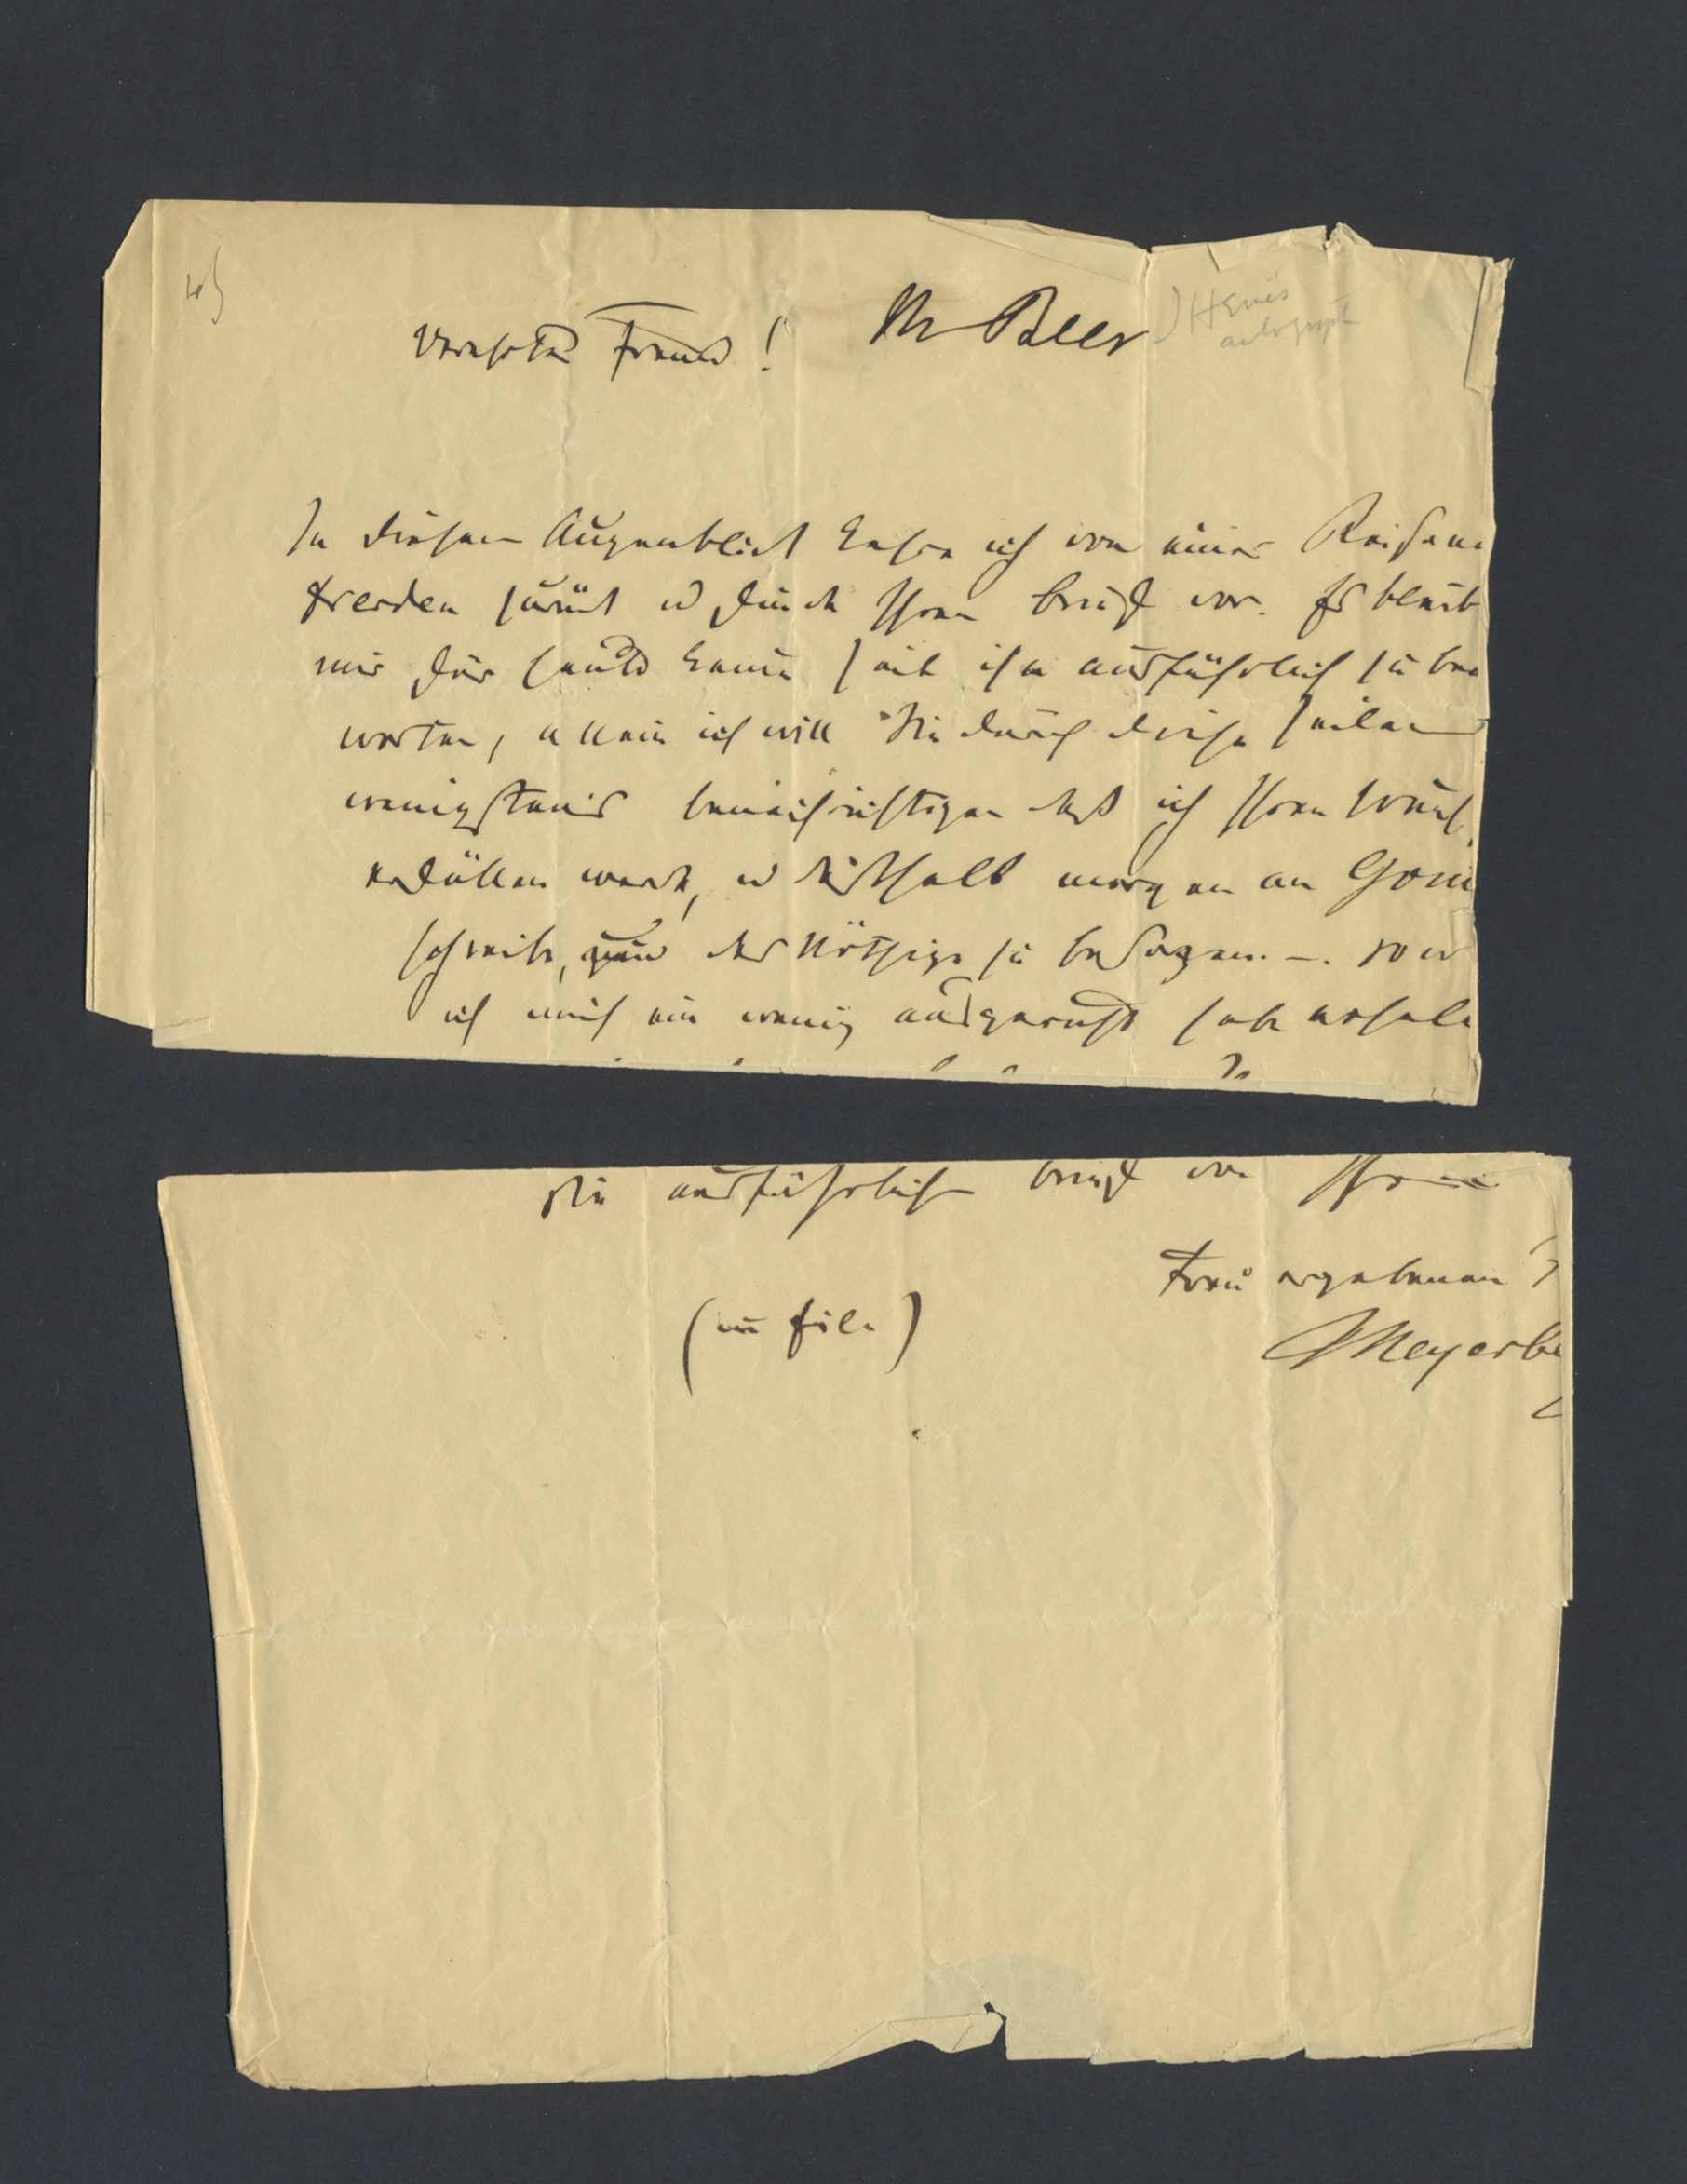 45
Verehrter Freund!
M Beer
Henris
autograph
In diesem Augenblick kehre ich von einer Reise na
Dresden zurück u finde Ihren Brief vor. Es bleibt
mir für heute keine Zeit ihn ausführlich zu bea
worten, allein ich will Sie durch diese Zeilen
wenigstens benachrichtigen daß ich Ihren Wunsch
erfüllen werde, u deshalb morgen an Goui
schreibe, um das Nöthige zu besorgen. —. So w
ich mich ein wenig ausgeruht habe erhalte
Sie ausführlichen Brief von Ihrem
Treu ergebenen
Meyerbe
(in Eile)